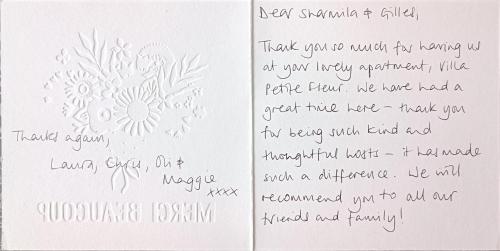 Dear Sharmila & Gilles,
Thank you so much for having us
at your lovely apartment, Villa
Petite Fleur. We have had a
great time here - thank you
for being such kind and
thoughtful hosts - it has made
such a difference. We will
recommend you to all our
friends and family!
Thanks again,
Laura, Chris, Oli &
Maggie
xxxx
MERCI BEAUCOUP